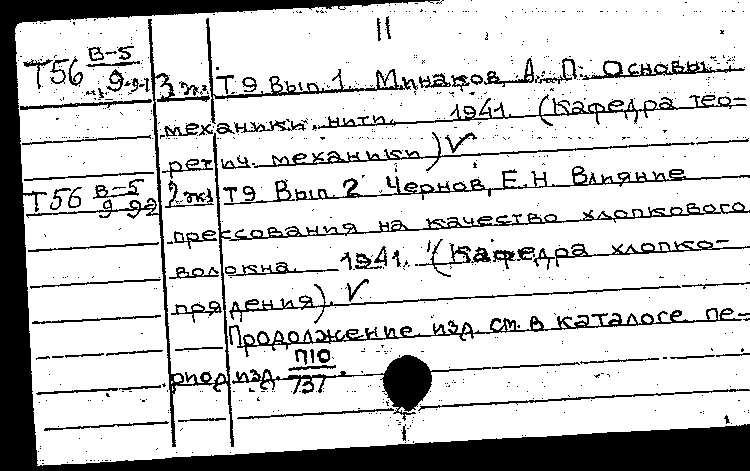 II
Т56 В-5/9-91 3 эк. Т.9. Вып. 1. Минаков, А. П. Основы
механики нити. 1941. (Кафедра тео=
ретич. механики) ✓
Т56 В-5/9-92 2 эк. Т9. Вып. 2 Чернов, Е. Н. Влияние
прессования на качество хлопкового
волокна. 1941. (Кафедра хлопко-
прядения). ✓
Продолжение изд. см. в каталоге пе-
риод. изд. П10/737.